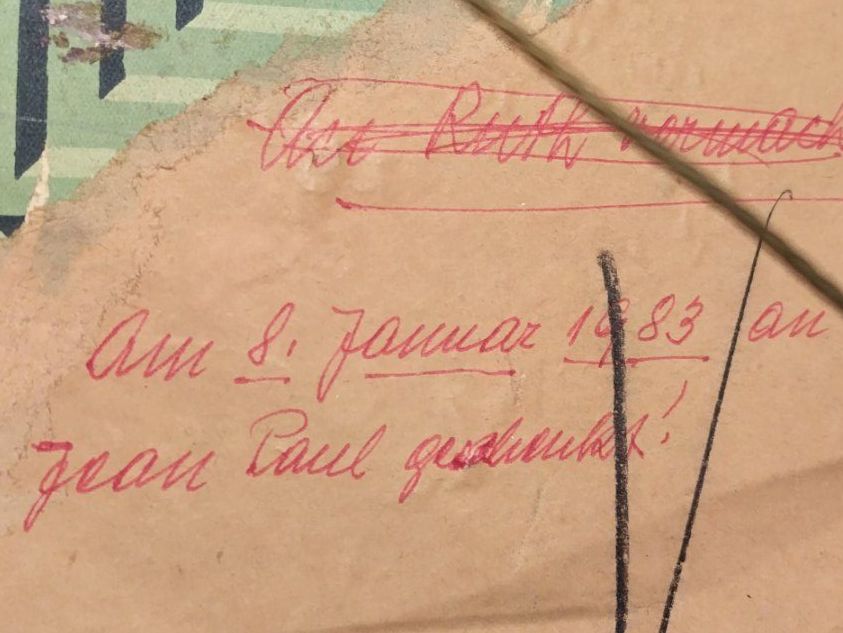 An Ruth vermach
Am 8. Januar 1983 an
Jean Paul geschenkt!